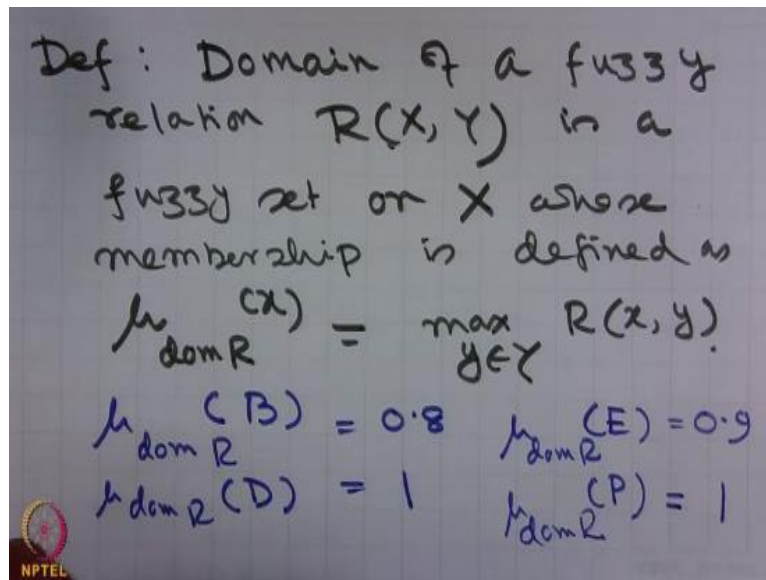 Def : Domain of a fuzzy
relation R(X, Y) is a
fuzzy set on X whose
membership is defined as
μ_dom R (x) = max_y∈Y R(x, y).
μ_dom R (B) = 0.8 μ_dom R (E) = 0.9
μ_dom R (D) = 1 μ_dom R (P) = 1
NPTEL